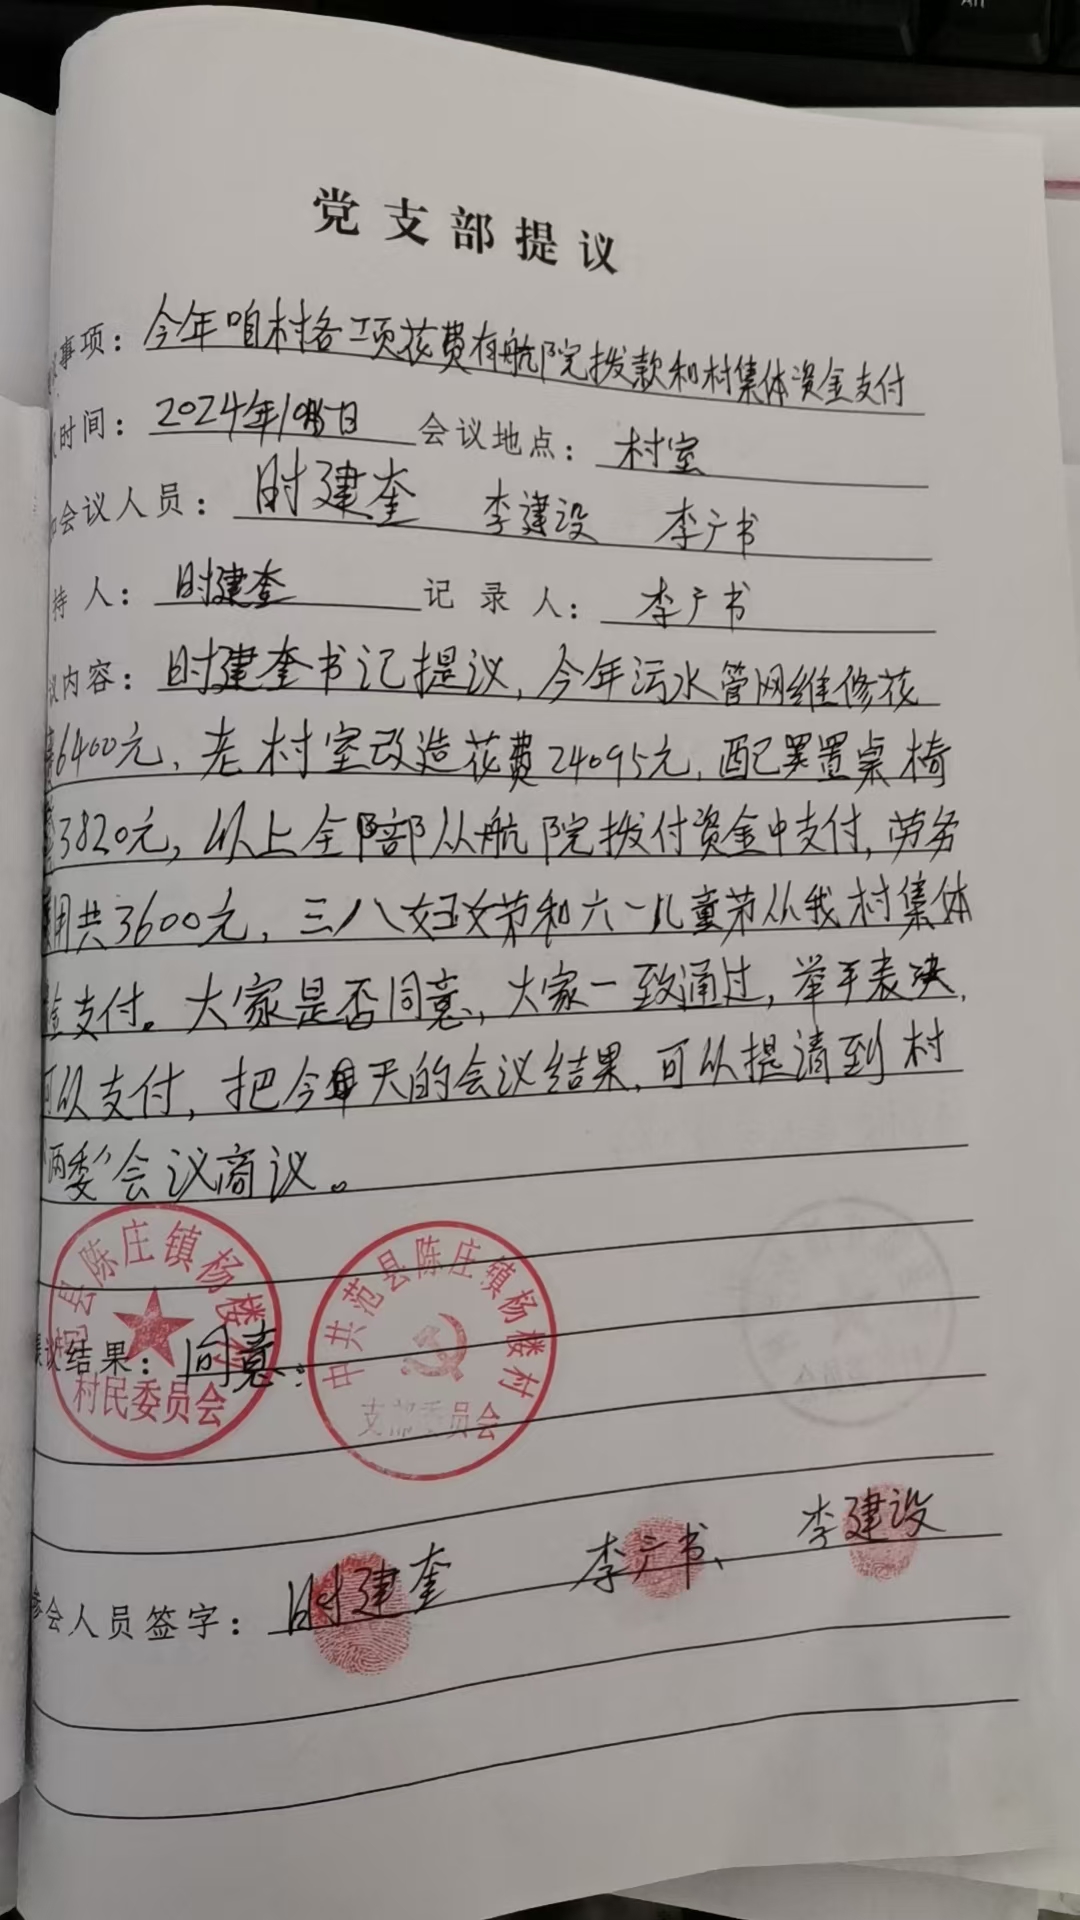 党支部提议
事项：今年咱村各项花费有航院拨款和村集体资金支付
时间：2024年10月 日 会议地点：村室
会议人员：时建奎 李建设 李广书
持人：时建奎 记录人：李广书
议内容：时建奎书记提议，今年污水管网维修花
6400元，老村室改造花费24095元，配置桌椅
3820元，以上全部从航院拨付资金中支付，劳务
用共3600元，三八妇女节和六一儿童节从我村集体
金支付。大家是否同意，大家一致通过，举手表决，
可以支付，把今天的会议结果，可以提请到村
“两委”会议商议。
县陈庄镇杨楼村
村民委员会
中共范县陈庄镇杨楼村
支部委员会
议结果：同意：
参会人员签字：时建奎 李广书、李建设